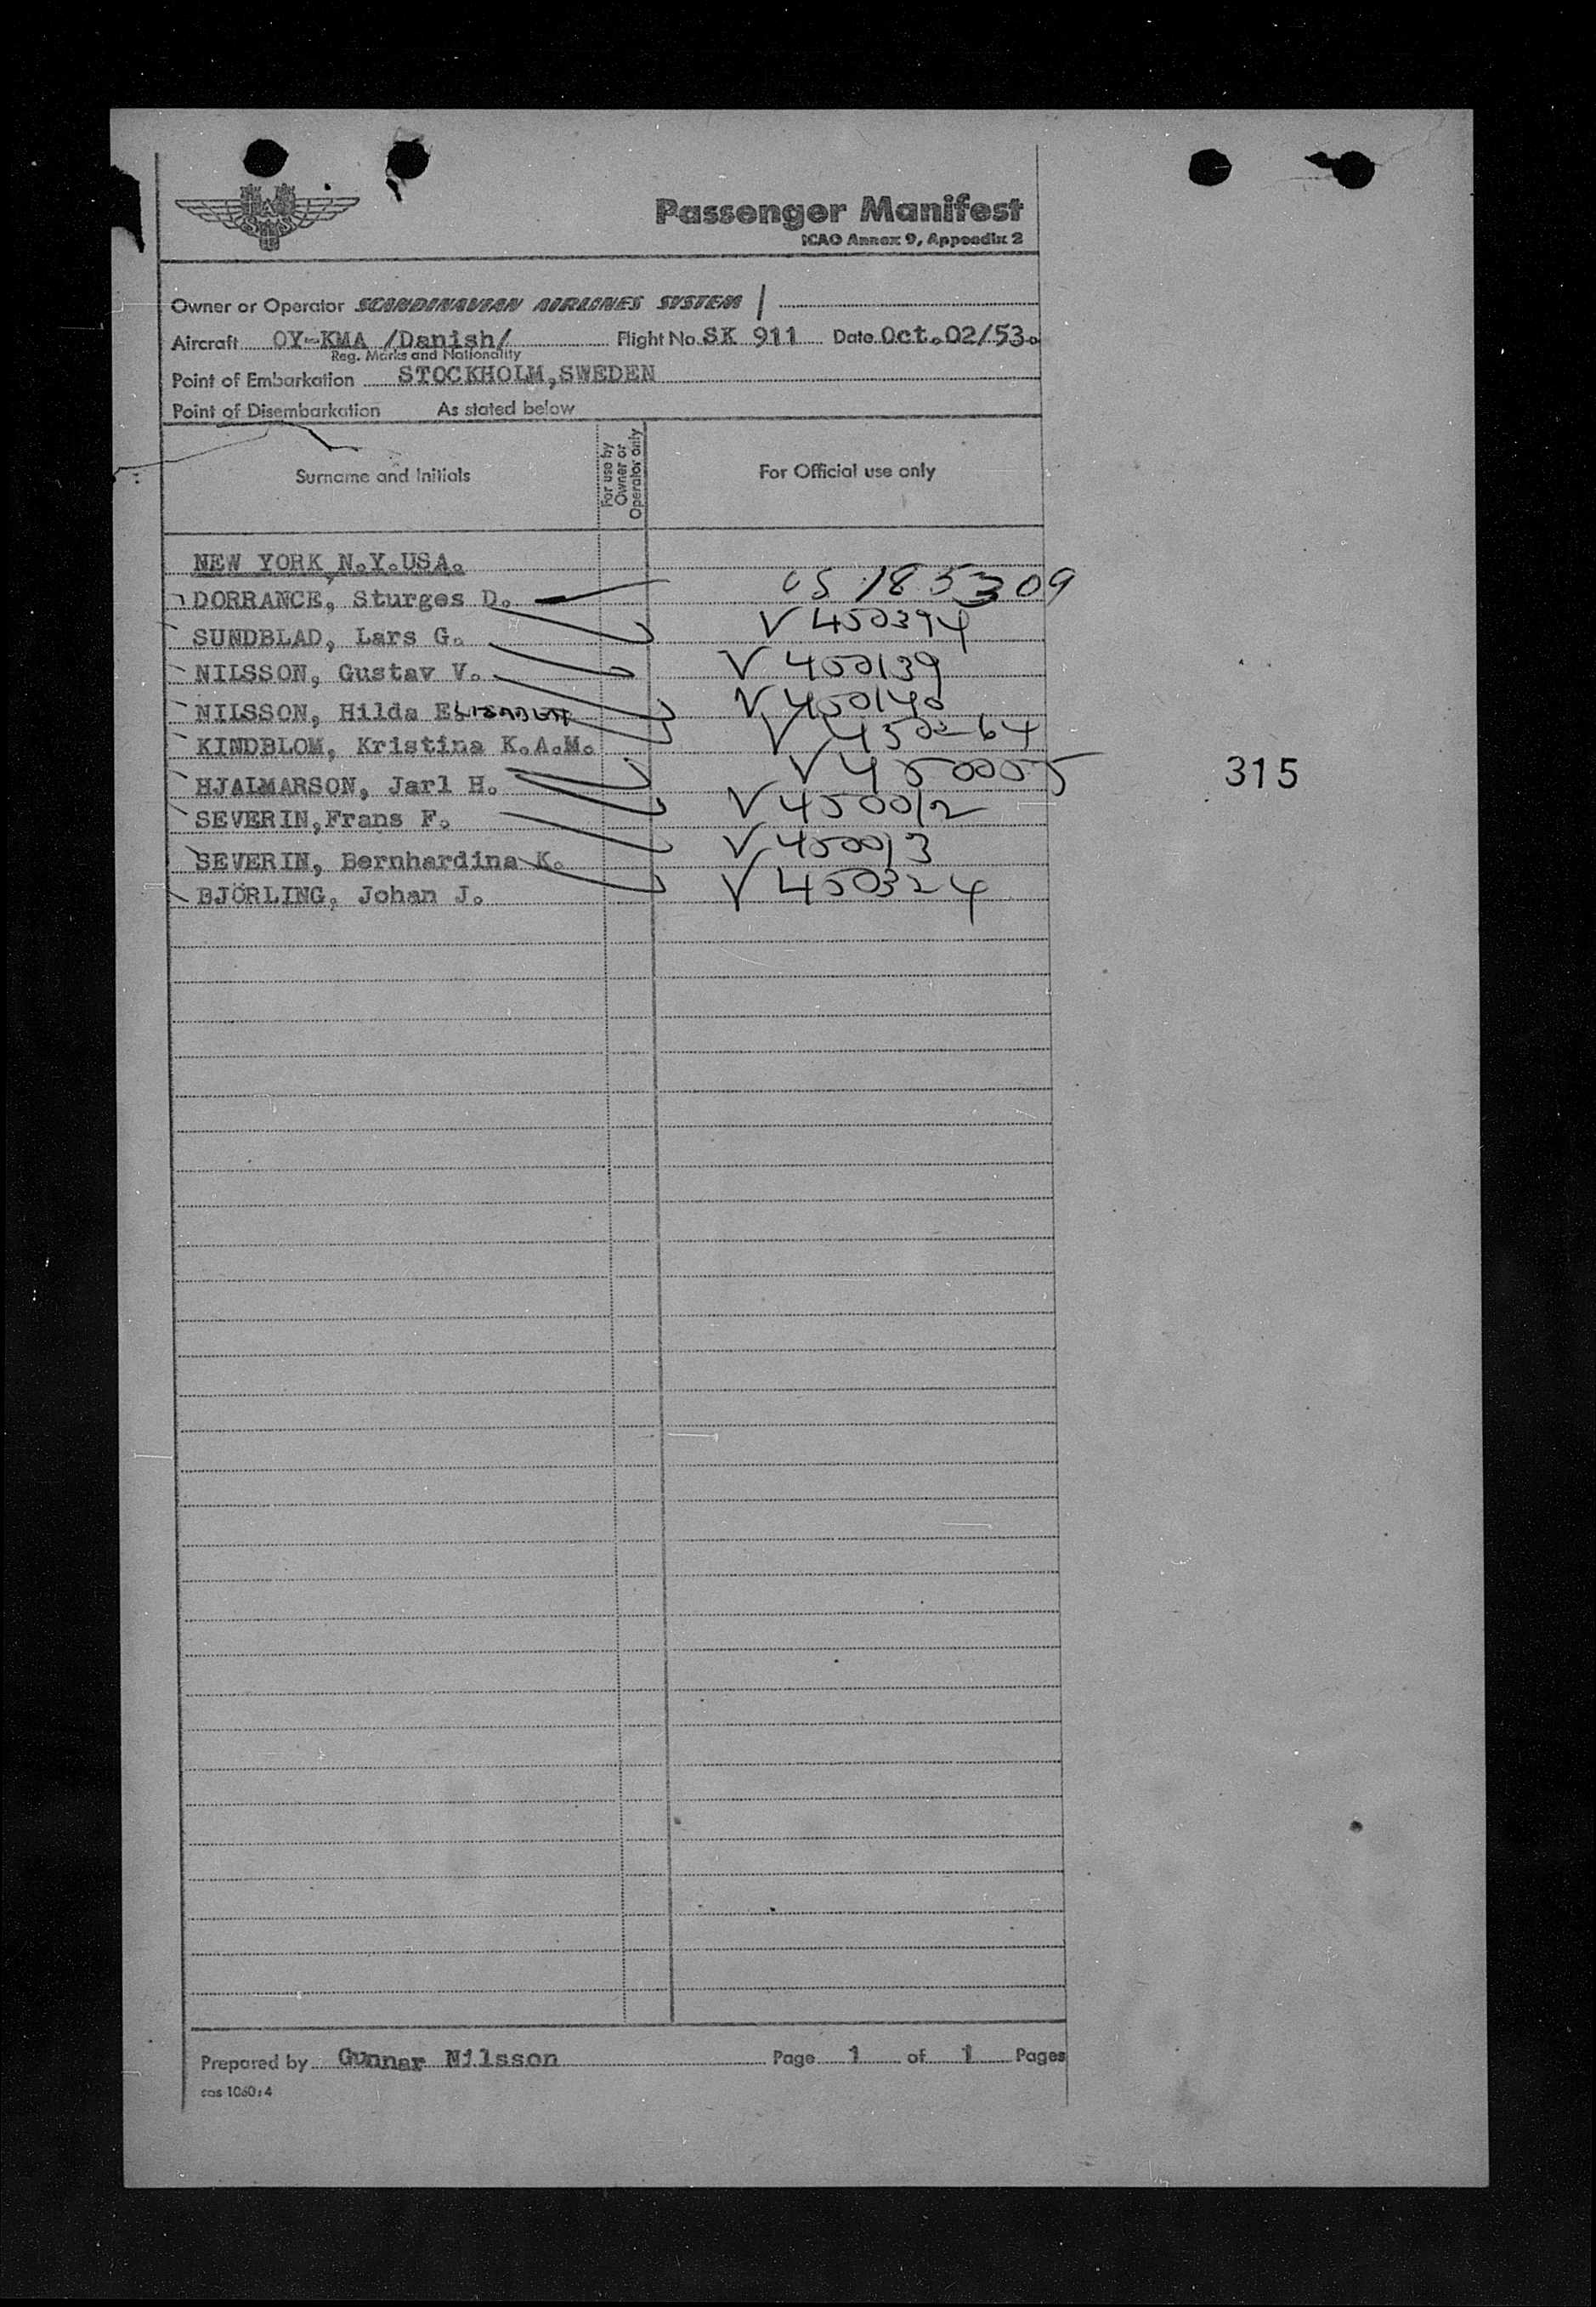 SAS
Passenger Manifest
ICAO Annex 9, Appendix 2
Owner or Operator SCANDINAVIAN AIRLINES SYSTEM
Aircraft OY-KMA /Danish/ Flight No. SK 911 Date Oct. 02/53.
Reg. Marks and Nationality
Point of Embarkation STOCKHOLM, SWEDEN
Point of Disembarkation As stated below
Surname and Initials For use by Owner or Operator only For Official use only
NEW YORK, N.Y. USA.
DORRANCE, Sturges D. 185309
SUNDBLAD, Lars G. V 450394
NILSSON, Gustav V. V 450139
NILSSON, Hilda ELISABETH V 450140
KINDBLOM, Kristina K.A.M. V 450264
HJALMARSON, Jarl H. V 450005
315
SEVERIN, Frans F. V 450012
SEVERIN, Bernhardina K. V 450013
BJÖRLING, Johan J. V 450324
Prepared by Gunnar Nilsson Page 1 of 1 Pages
sas 1060:4